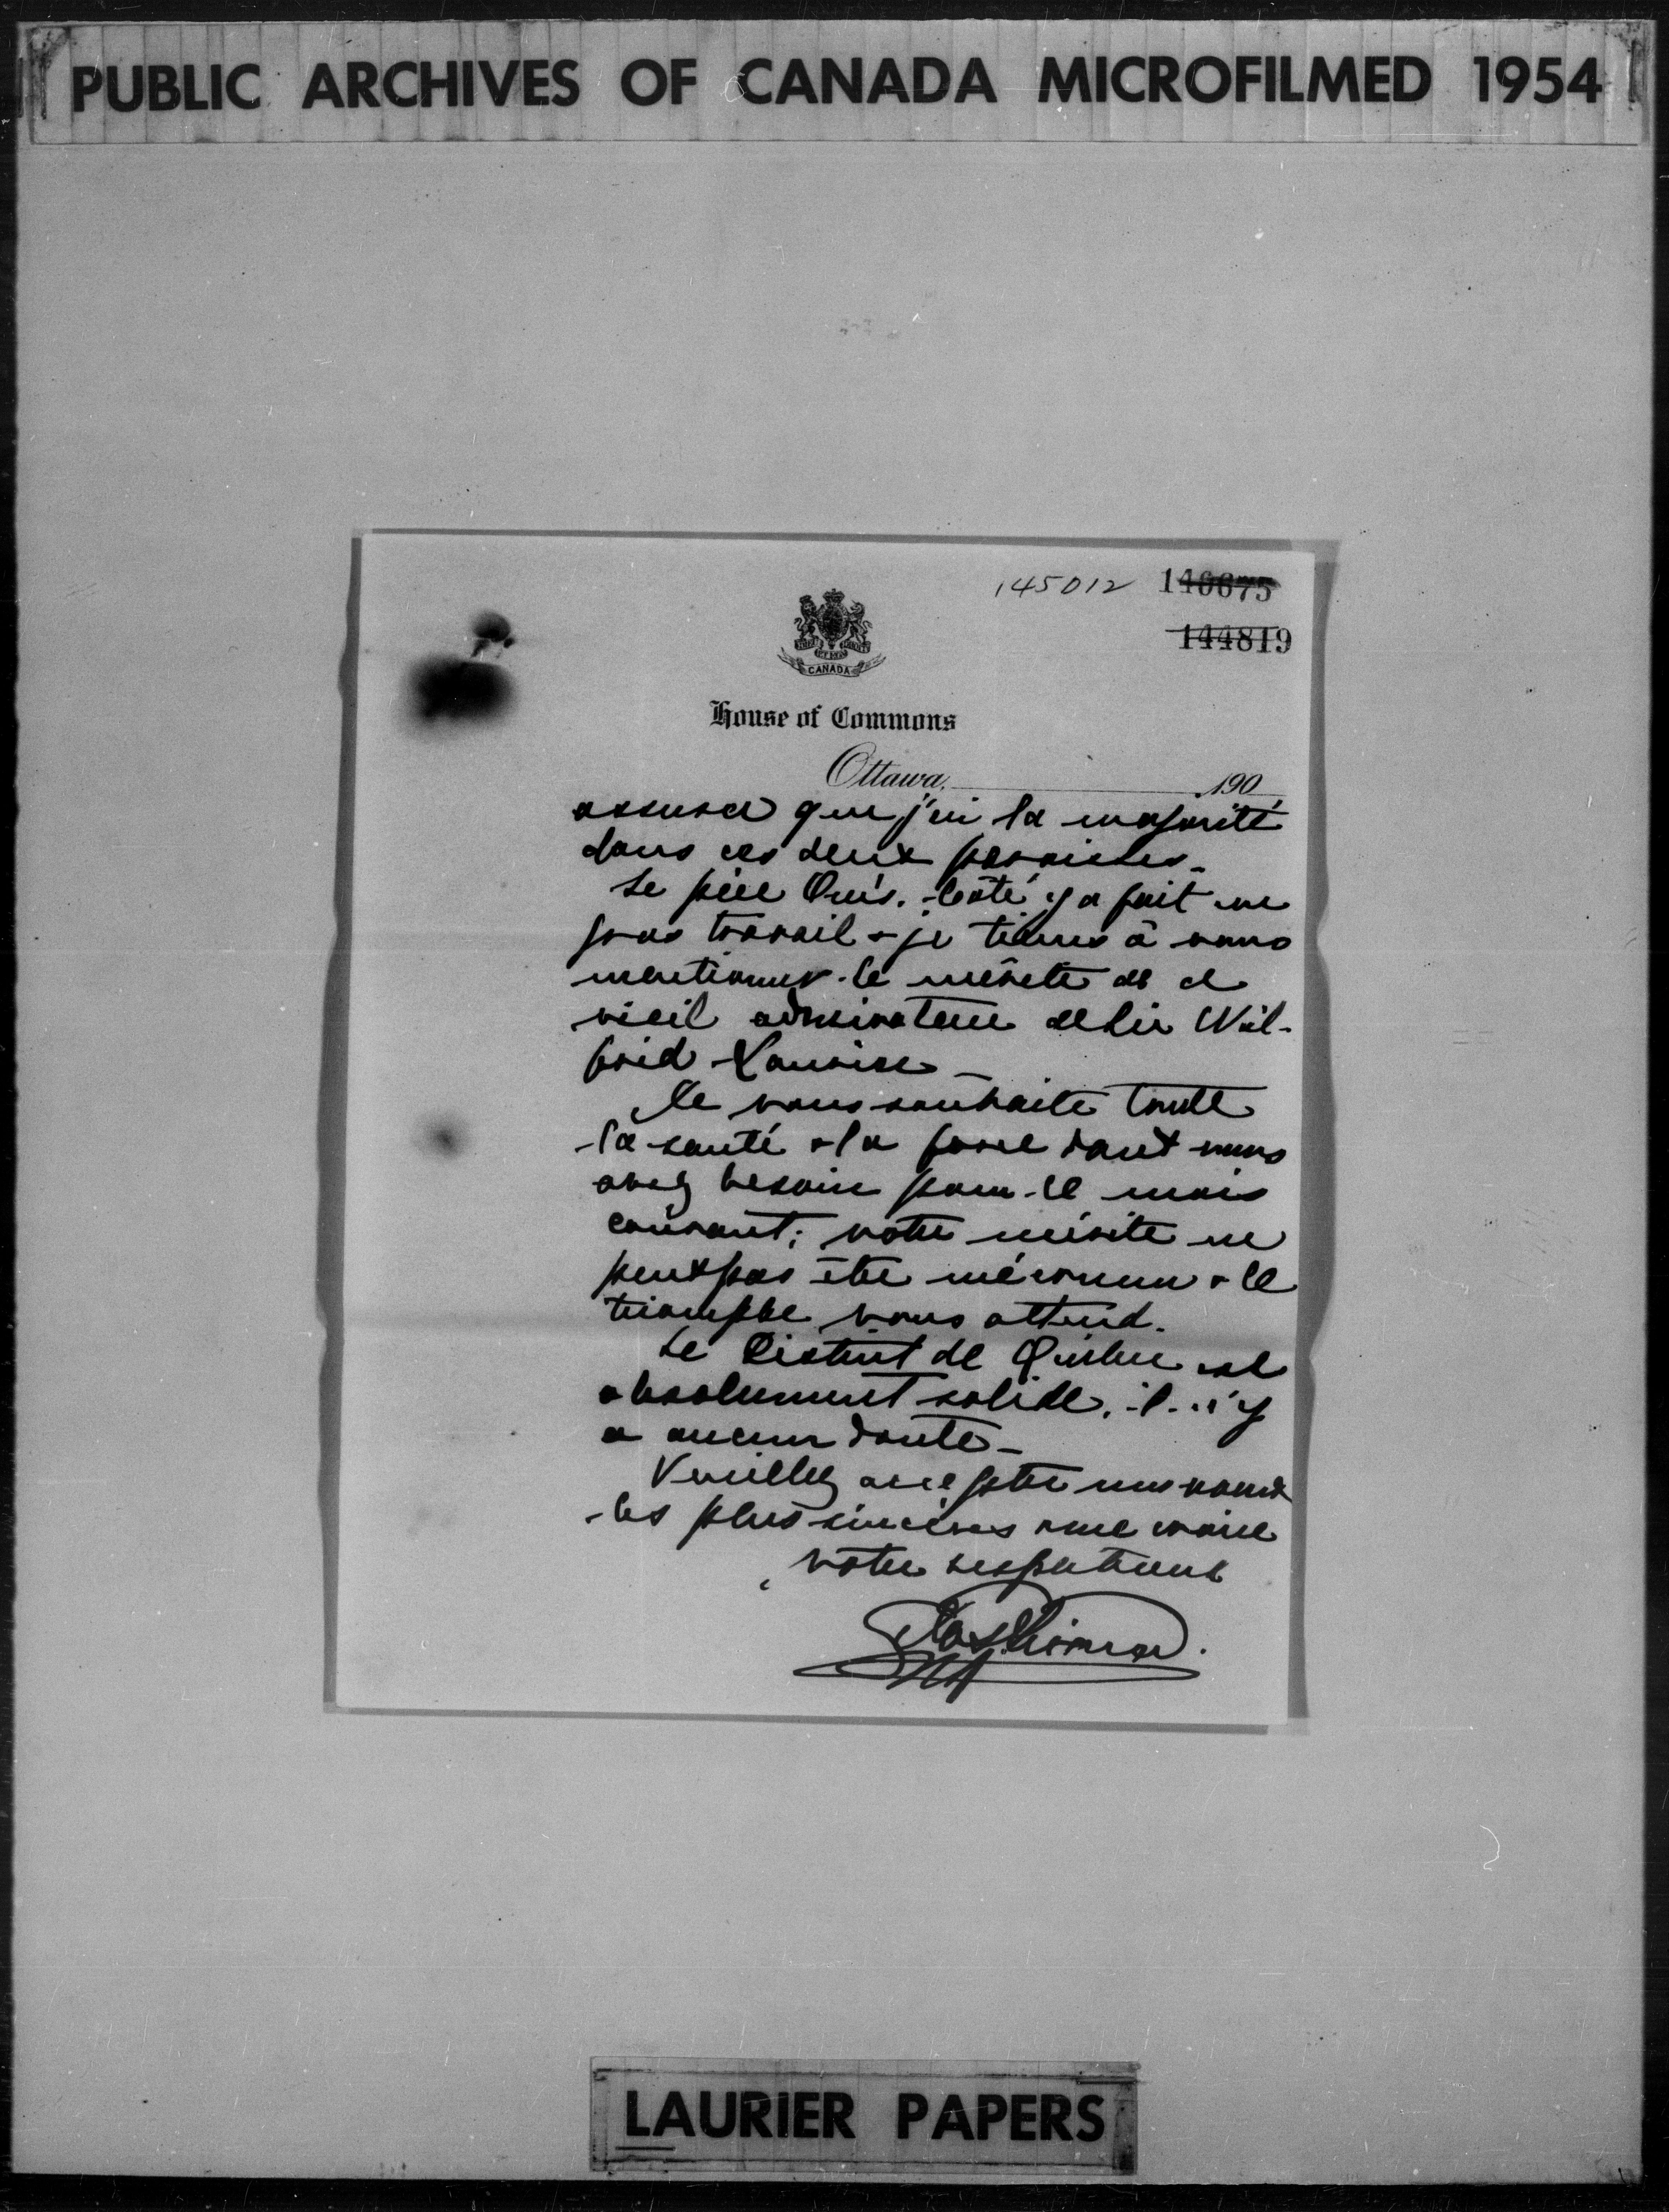 PUBLIC ARCHIVES OF CANADA MICROFILMED 1954
145012 140675
144819
CANADA
House of Commons
Ottawa, 190
assurer que j'ai la majorité
dans ces deux paroisses.
Le père Côté y a fait un
gros travail & je tiens à vous
mentionner le mérite de ce
vieil admirateur de Sir Wil-
frid Laurier
Je vous souhaite toute
la santé & la force dont vous
avez besoin pour le mois
courant; votre mérite ne
peut pas être méconnu & le
triomphe vous attend.
Le District de Québec est
absolument solide, il n'y
a aucun doute -
Veuillez accepter mes voeux
les plus sincères & me croire
votre respectueux
LAURIER PAPERS